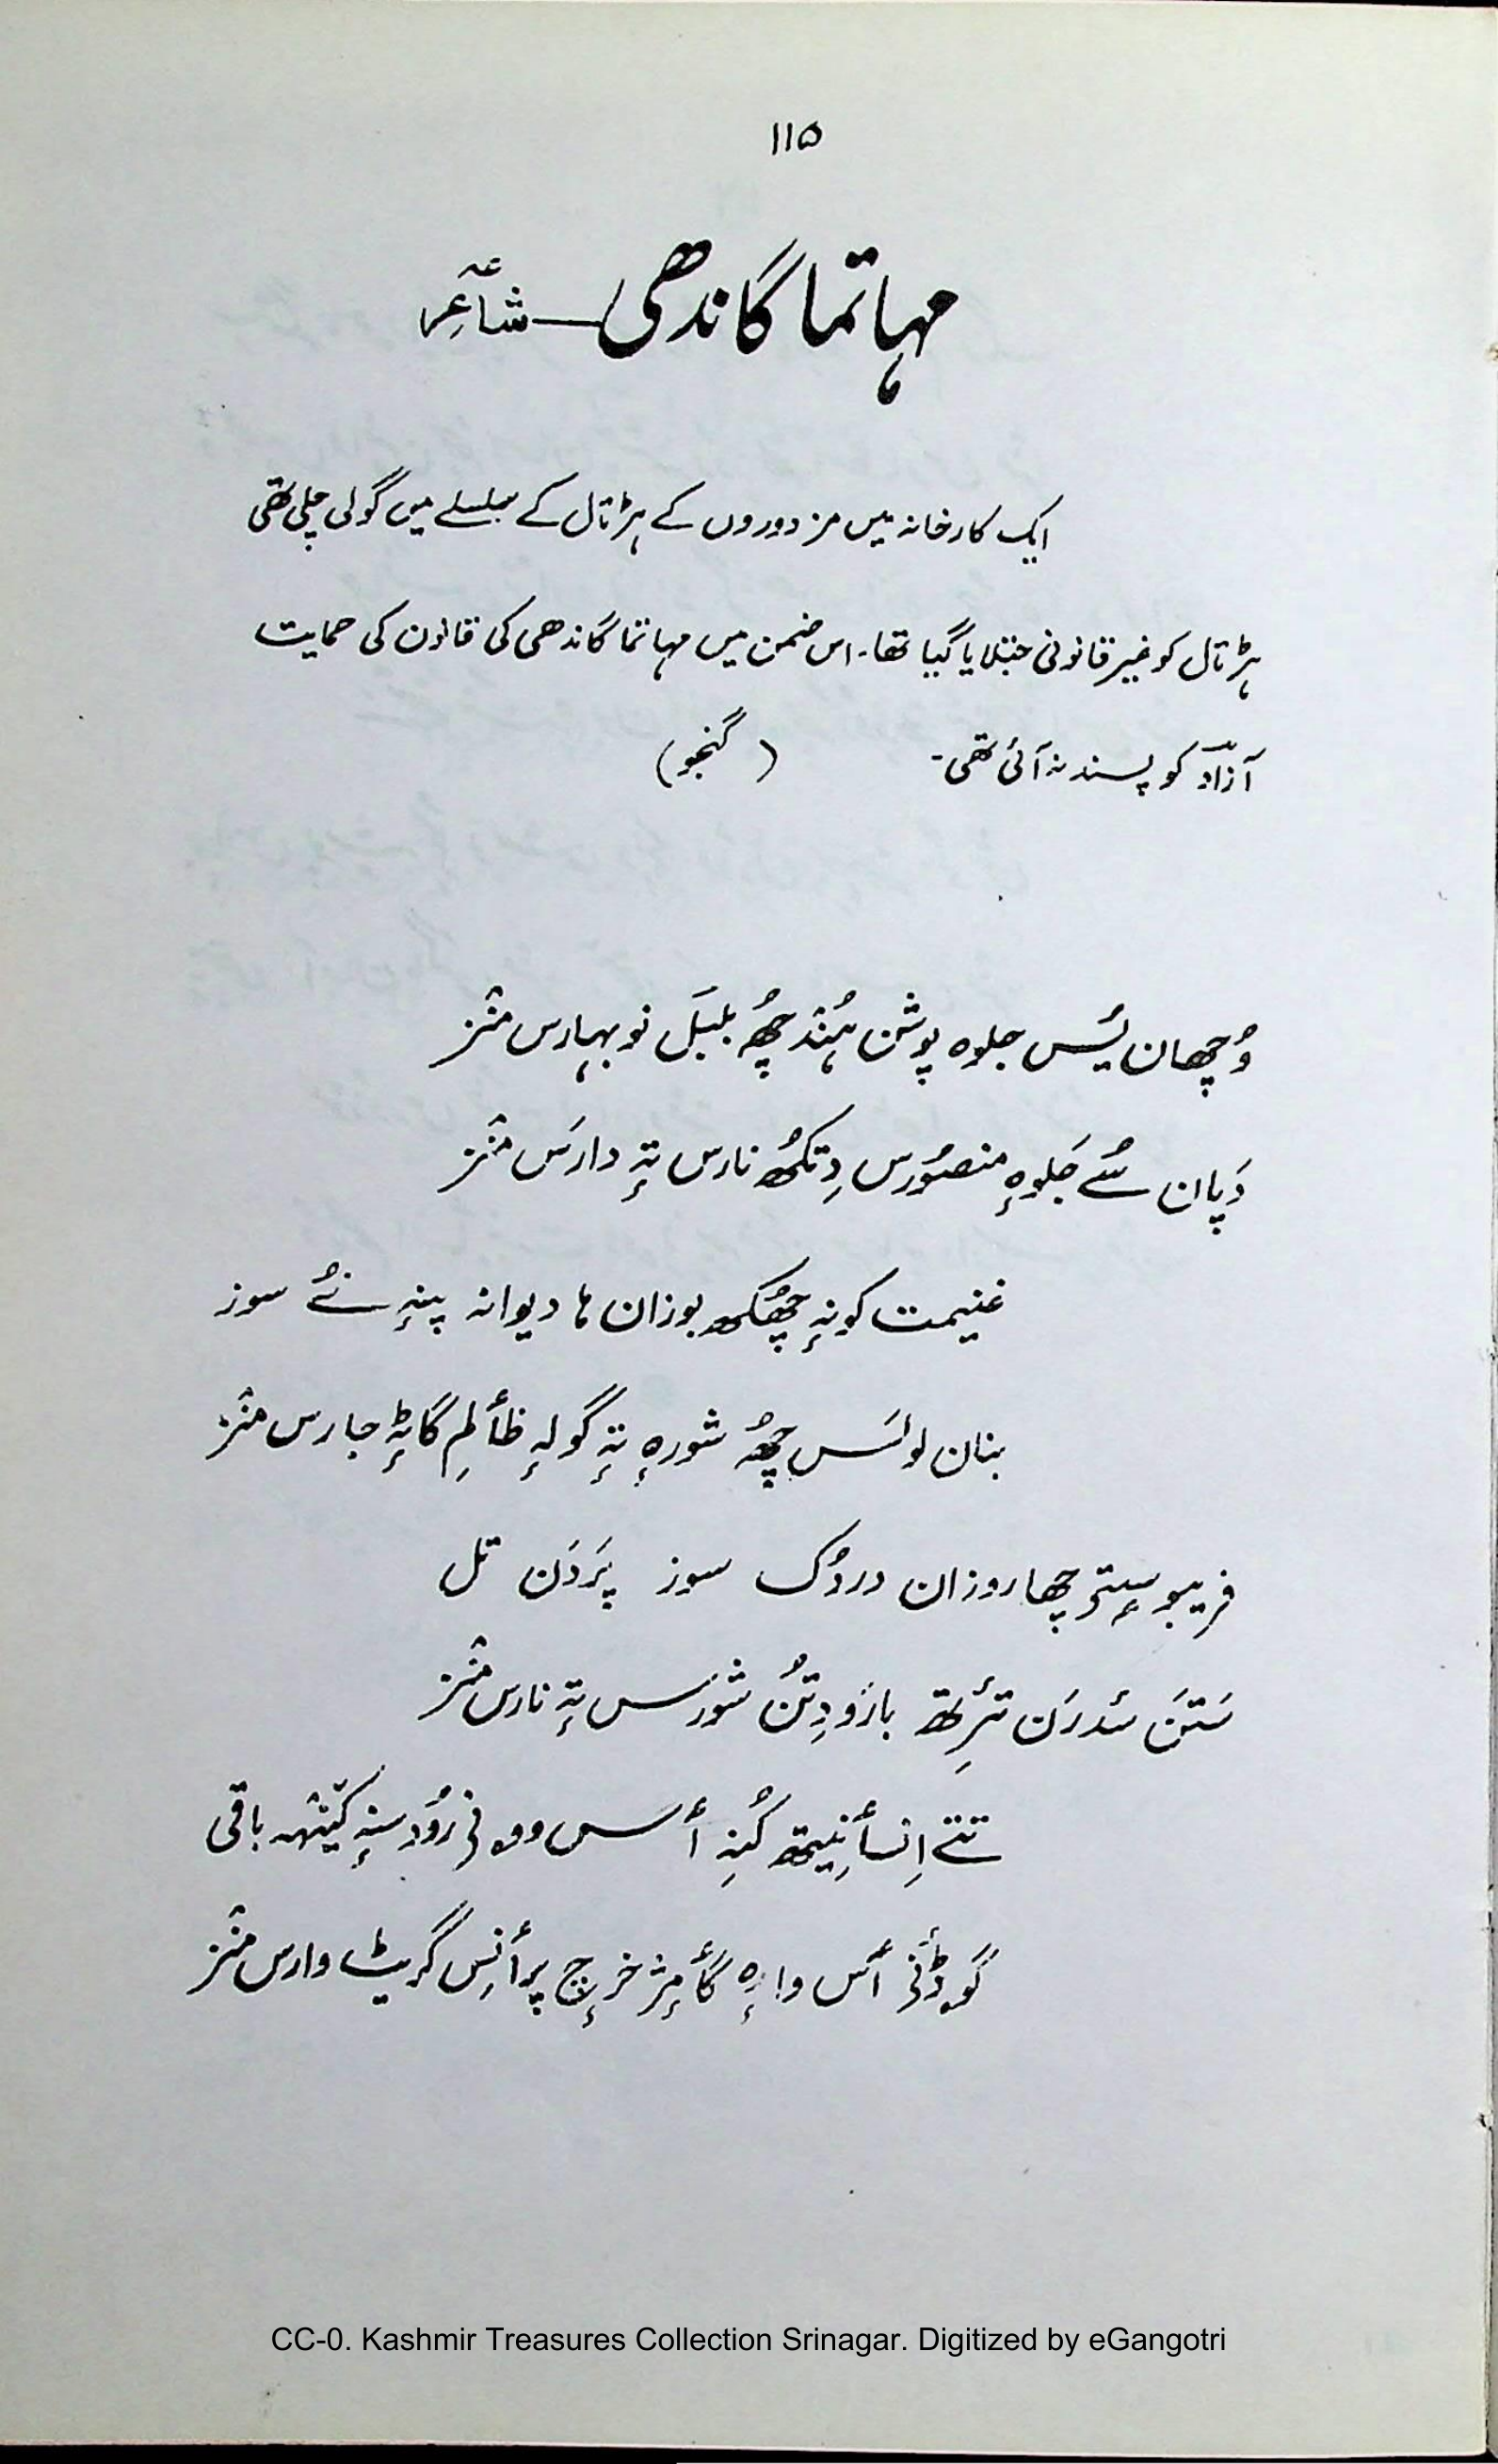 ۱۱۵
مہاتما گاندھی — شاعِر
ایک کارخانہ میں مزدوروں کے ہڑتال کے سلسلے میں گولی چلی تھی
ہڑتال کو غیر قانونی جتلایا گیا تھا۔ اس ضمن میں مہاتما گاندھی کی قانون کی حمایت
آزادؔ کو پسند نہ آئی تھی۔ (گنجو)
وُچھان یُس جلوہ پوشن ہُنٛد چھُ بلبَل نوبہارس منٛز
دَپان سُے جَلوہٕ منصوٗرس دِتکھُ نارس تہٕ دارَس منٛز
غنیمت کونہٕ چھُکھ بوزان ہا دیوانہ پنہٕ نُے سوز
بنان لولَس چھُ شورہٕ تہٕ گولہٕ ظٲلِم گاٹہٕ جارس منٛز
فریبو سٟتۍ چھا روزان دردُک سوز پَردَن تل
سَتَن سٔدرَن تٔرِتھ بازَو دِتُن شورَس تہٕ نارس منٛز
تتے اِنسٲنِیتھ کُنِہ أس وونۍ روٗد نہٕ کینٛہہ باقی
گوڈٔنۍ أس وارہٕ گٲمٕژ خرٕچ پرٲنِس گریٹہ وارس منٛز
CC-0. Kashmir Treasures Collection Srinagar. Digitized by eGangotri